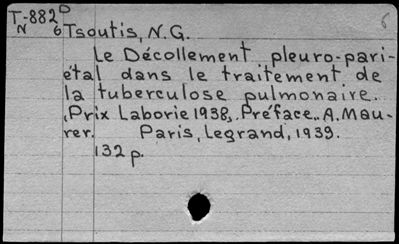 T-882 D 6
N 6 Tsoutis, N.G.
Le Décollement pleuro-pari-
étal dans le traitement de
la tuberculose pulmonaire.
(Prix Laborie 1938). Préface.. A. Mau-
rer. Paris, Legrand, 1939.
132 p.